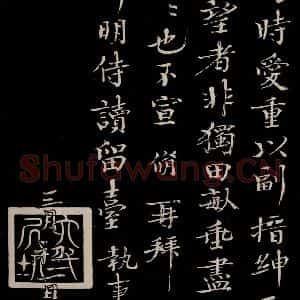 時愛重以副搢紳
望者非獨田畝垂盡
也不宣 脩 再拜
明侍讀留臺 執事
三月
Shufawang.CN